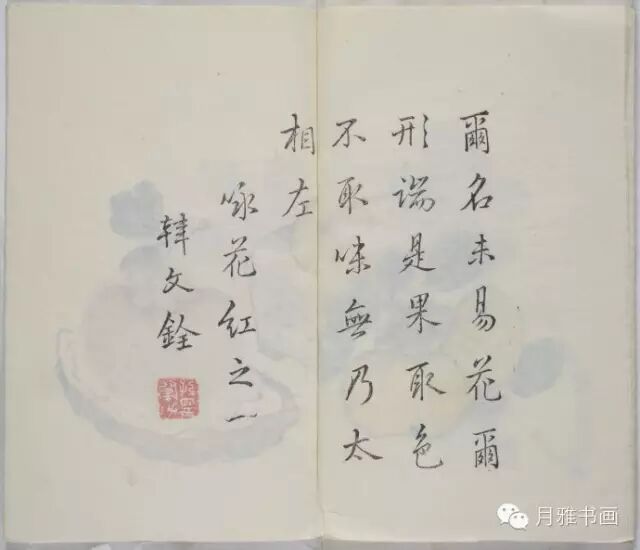 爾名未易花爾
形端是果取色
不取味無乃太
相左
咏花紅之一
韓文銓
月雅书画